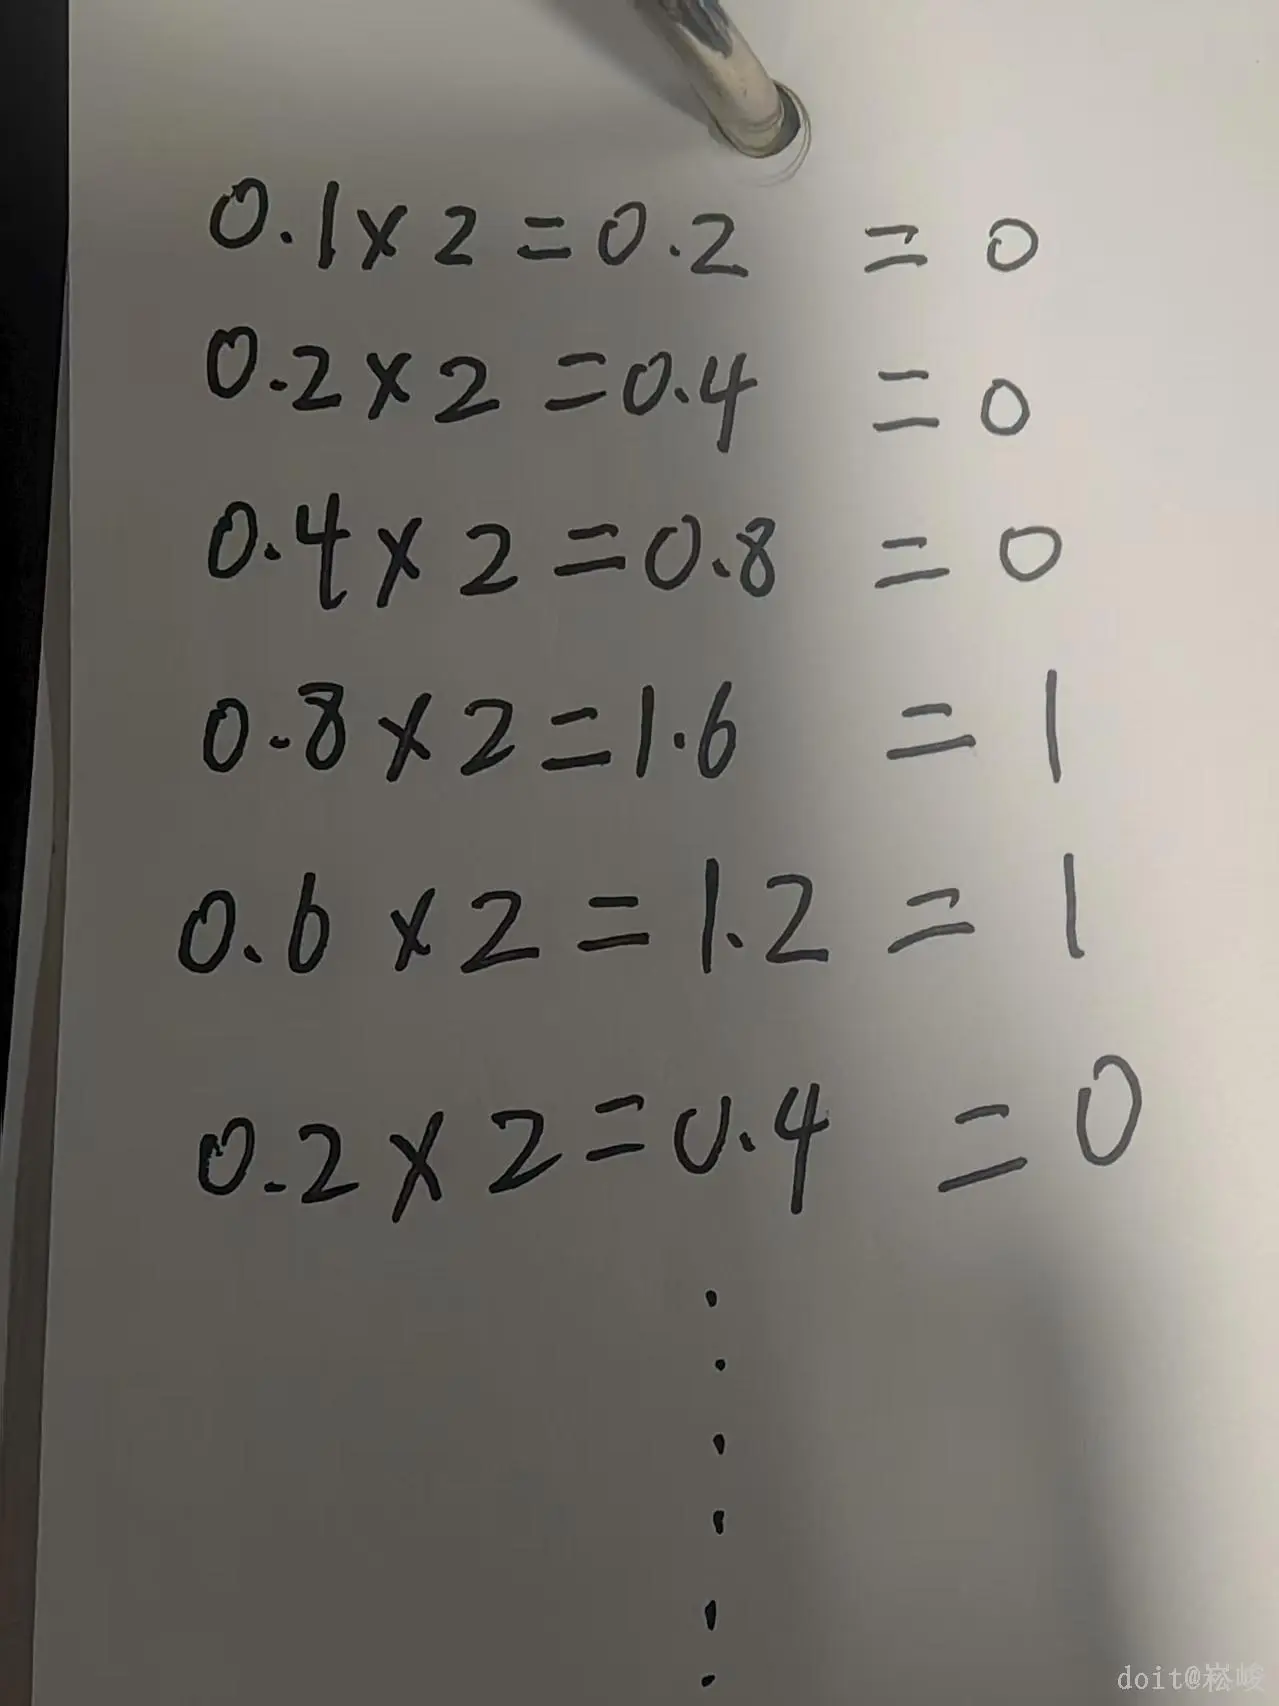 0.1×2=0.2 = 0
0.2×2=0.4 = 0
0.4×2=0.8 = 0
0.8×2=1.6 = 1
0.6×2=1.2 = 1
0.2×2=0.4 = 0
.
.
.
.
.
.
doit@崧峻